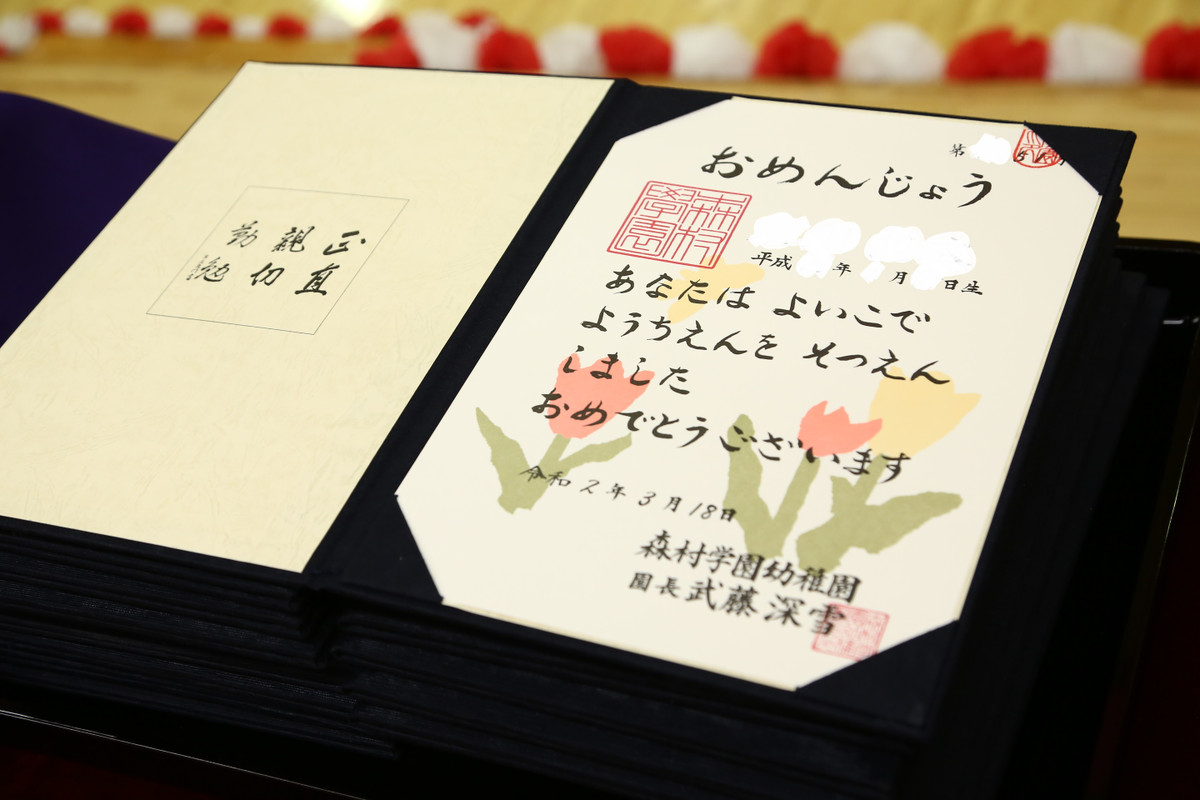 正直
親切
勤勉
第
おめんじょう
森村
學園
平成 年 月 日生
あなたは よいこで
ようちえんを そつえん
しました
おめでとう ございます
令和2年3月18日
森村学園幼稚園
園長 武藤深雪